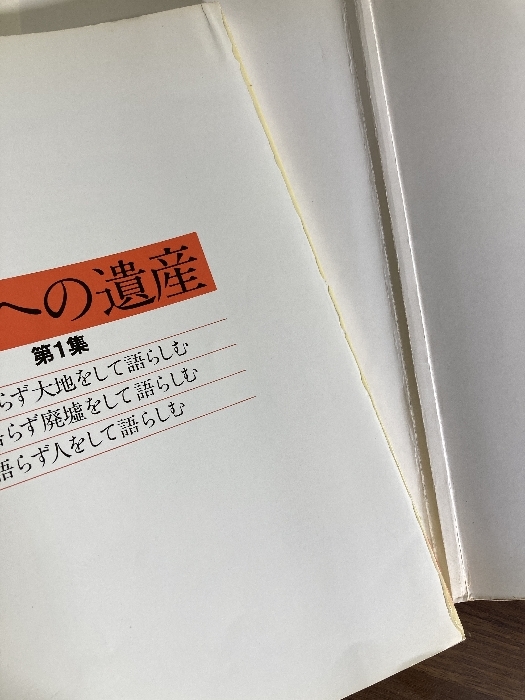 への遺産
第1集
らず大地をして語らしむ
らず廃墟をして語らしむ
語らず人をして語らしむ